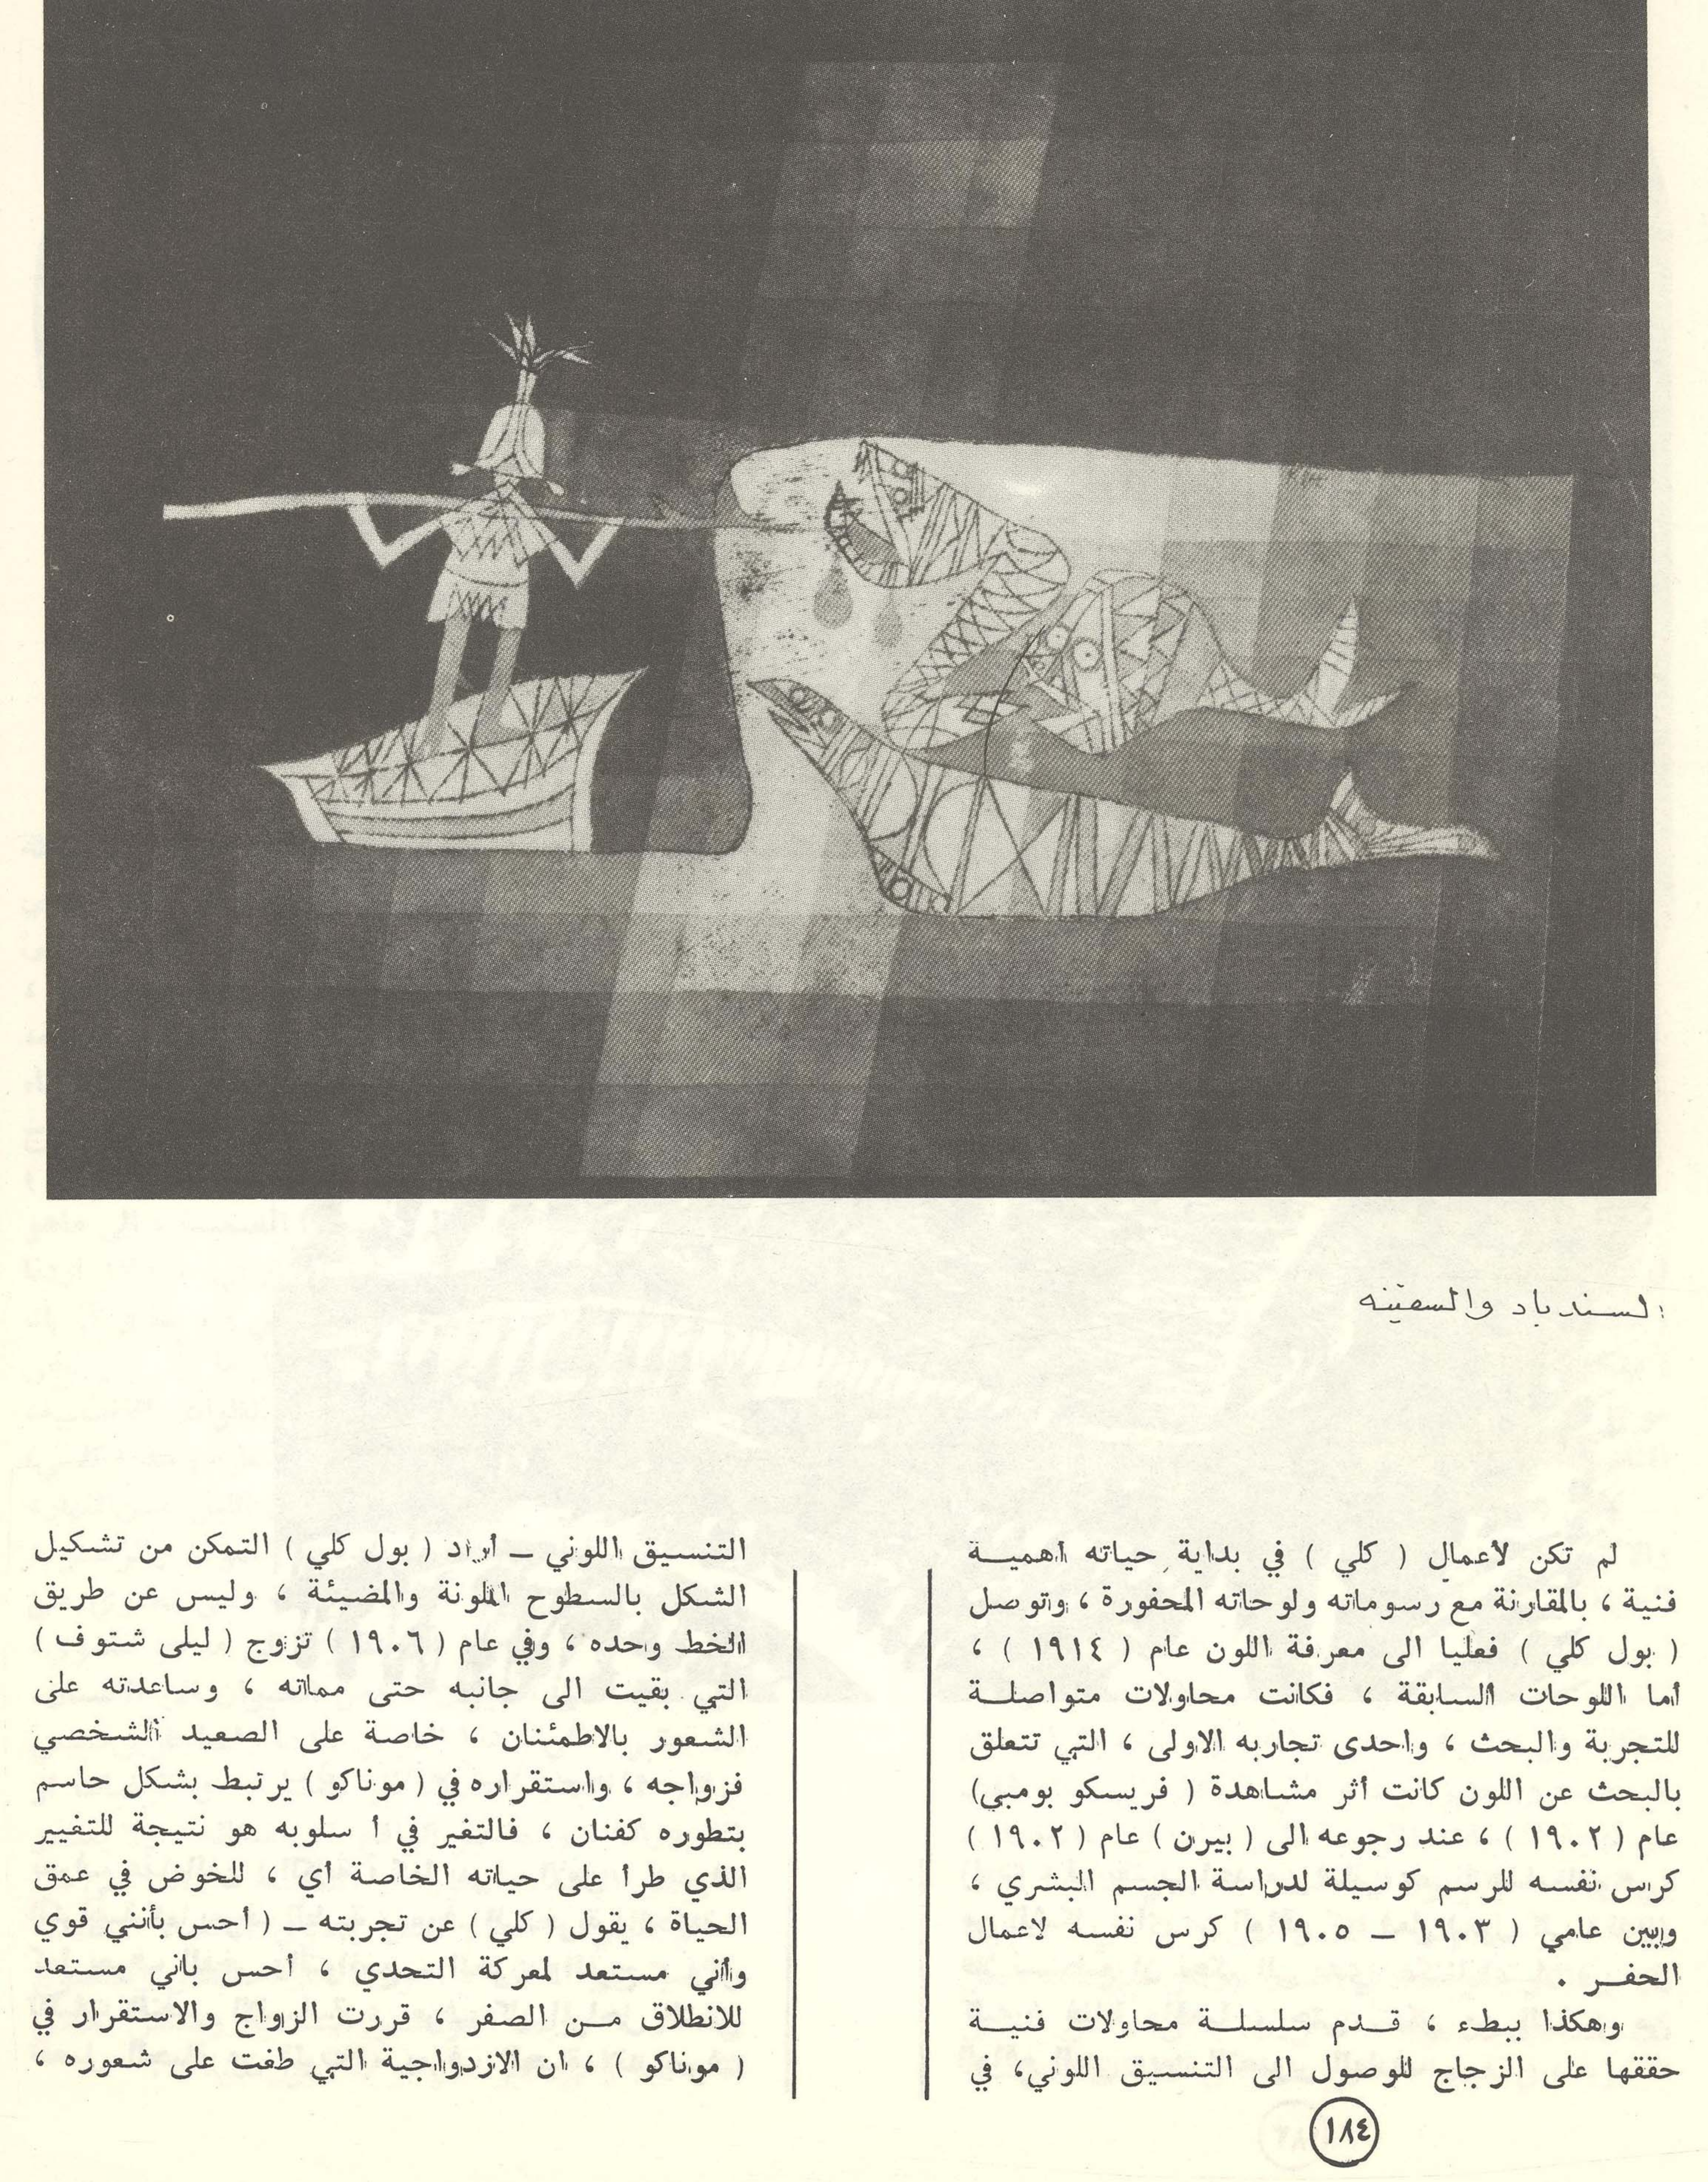 السندباد والسفينه
لم تكن لأعمال ( كلي ) في بداية حياته أهميـــة
فنية ، بالمقارنة مع رسوماته ولوحاته المحفورة ، وتوصل
( بول كلي ) فعليا الى معرفة اللون عام ( ١٩١٤ ) ،
أما اللوحات السابقة ، فكانت محاولات متواصلـــة
للتجربة والبحث ، واحدى تجاربه الاولى ، التي تتعلق
بالبحث عن اللون كانت أثر مشاهدة ( فريسكو بومبي)
عام ( ١٩٠٢ ) ، عند رجوعه الى ( بيرن ) عام ( ١٩٠٢ )
كرس نفسه للرسم كوسيلة لدراسة الجسم البشري ،
وبين عامي ( ١٩٠٣ ــ ١٩٠٥ ) كرس نفسه لاعمال
الحفــر .
وهكذا ببطء ، قــدم سلسلــة محاولات فنيــة
حققها على الزجاج للوصول الى التنسيق اللوني، في
التنسيق اللوني ــ أراد ( بول كلي ) التمكن من تشكيل
الشكل بالسطوح الملونة والمضيئة ، وليس عن طريق
الخط وحده ، وفي عام ( ١٩٠٦ ) تزوج ( ليلى شتوف )
التي بقيت الى جانبه حتى مماته ، وساعدته على
الشعور بالاطمئنان ، خاصة على الصعيد الشخصي
فزواجه ، واستقراره في ( موناكو ) يرتبط بشكل حاسم
بتطوره كفنان ، فالتغير في أ سلوبه هو نتيجة للتغيير
الذي طرأ على حياته الخاصة أي ، للخوض في عمق
الحياة ، يقول ( كلي ) عن تجربته ــ ( أحس بأنني قوي
وأني مستعد لمعركة التحدي ، أحس باني مستعد
للانطلاق مــن الصفر ، قررت الزواج والاستقرار في
( موناكو ) ، ان الازدواجية التي طغت على شعوره ،
١٨٤